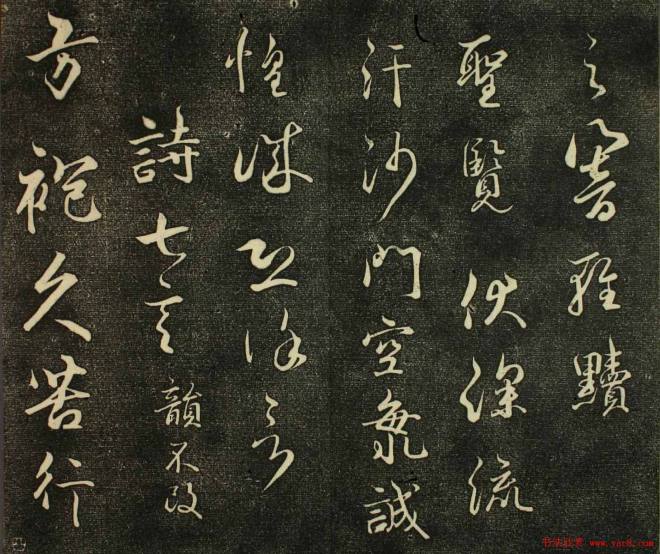 之輕黷
聖覽伏深流
汗沙門空海誠
惶誠恐謹言
詩七言韻不改
方袍久苦行
书法欣赏 www.yac8.com